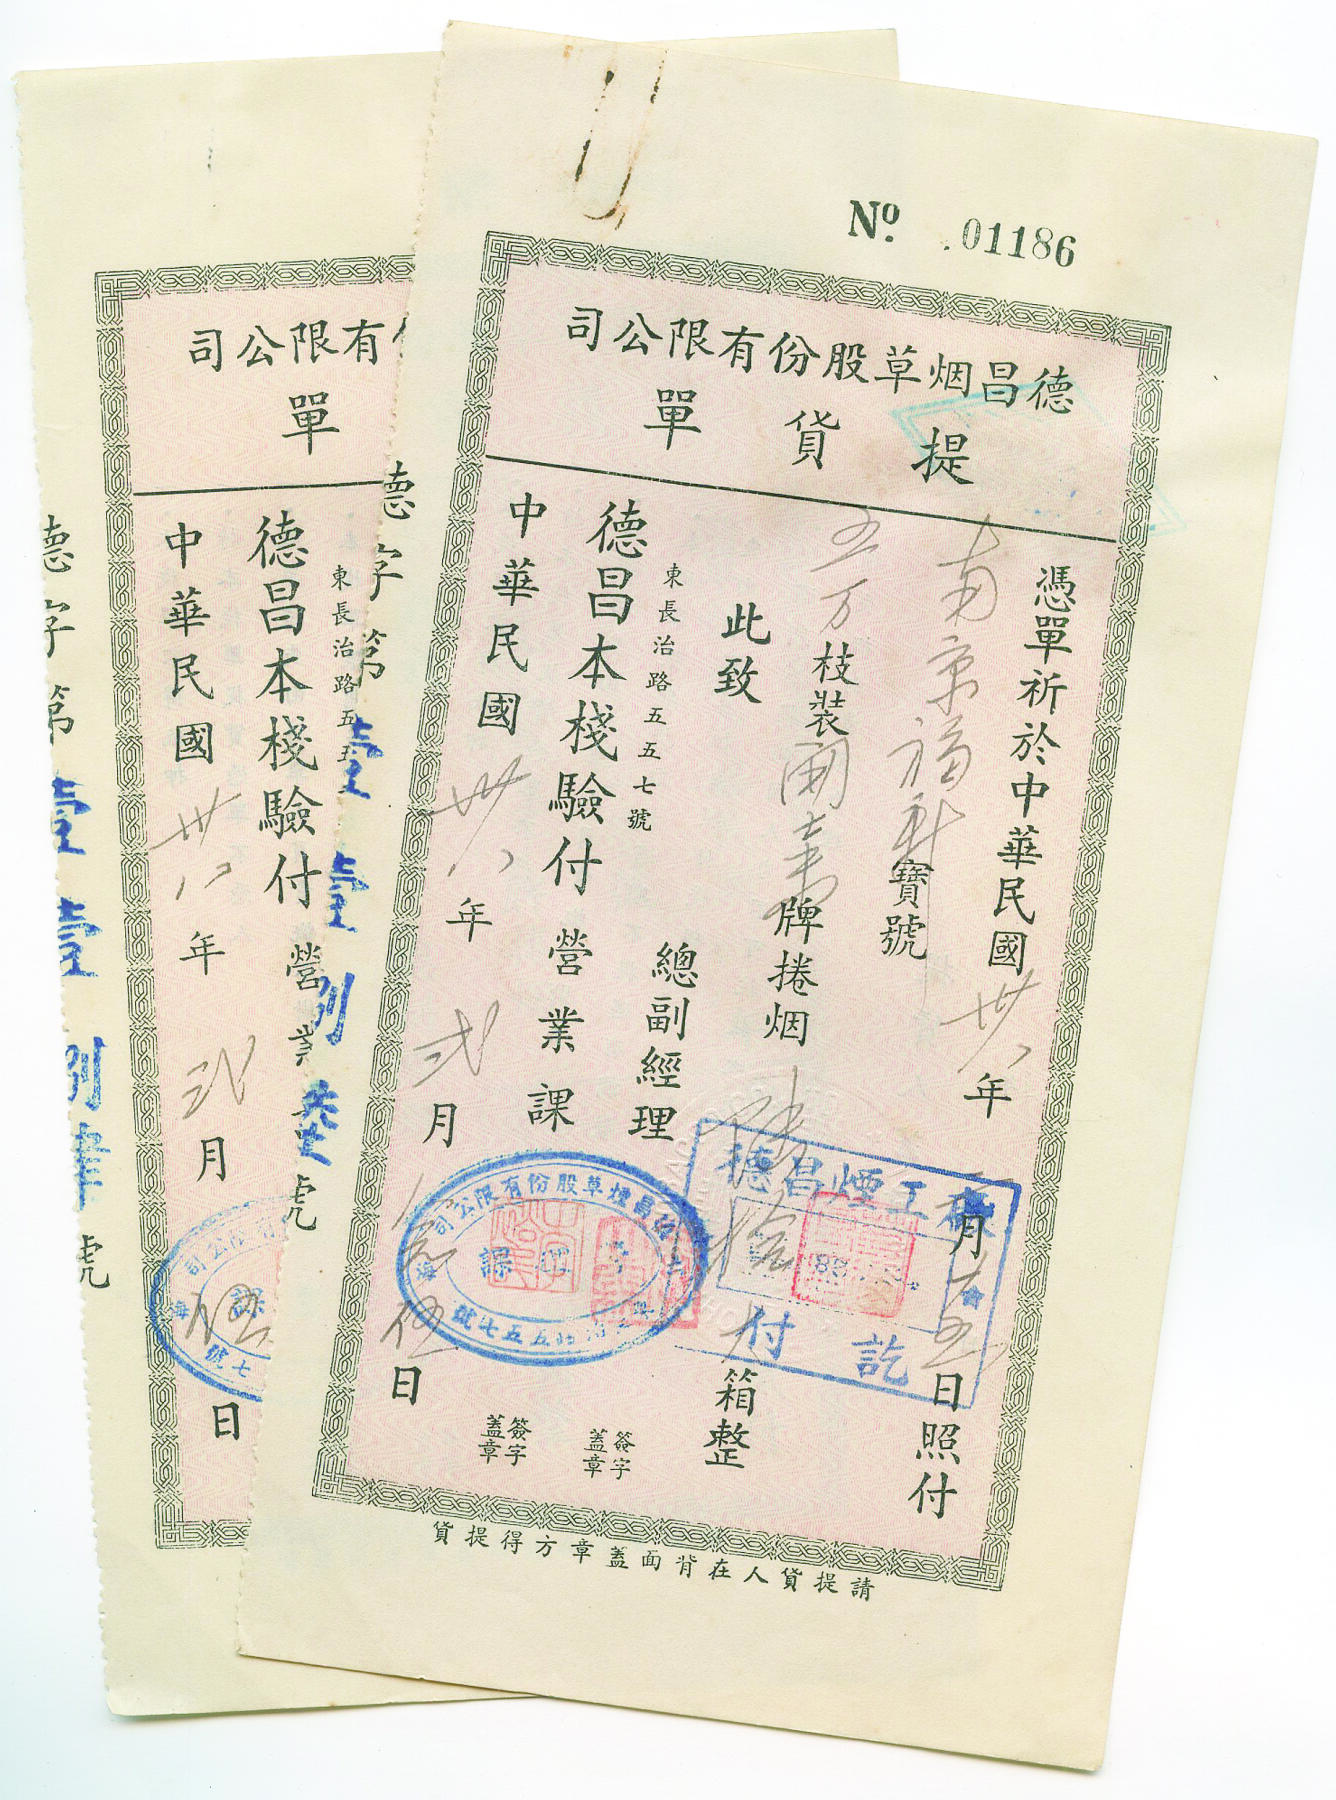 No. 01186
德昌烟草股份有限公司
提貨單
憑單祈於中華民國卅八年二月十五日照付
南京福新寶號
五万枝裝牌捲烟陸拾箱整
此致
東長治路五五七號
德昌本棧驗付
總副經理
營業課
簽字蓋章
簽字蓋章
中華民國卅八年弍月拾伍日
德昌煙工廠
付訖
德昌煙草股份有限公司
課
五五七號
請提貨人在背面蓋章方得提貨
德字第壹壹捌號
有限公司
單
東長治路五五
德昌本棧驗付
營業
中華民國卅八年弍月伍日
公司
課
七號
德字第壹壹捌肆號